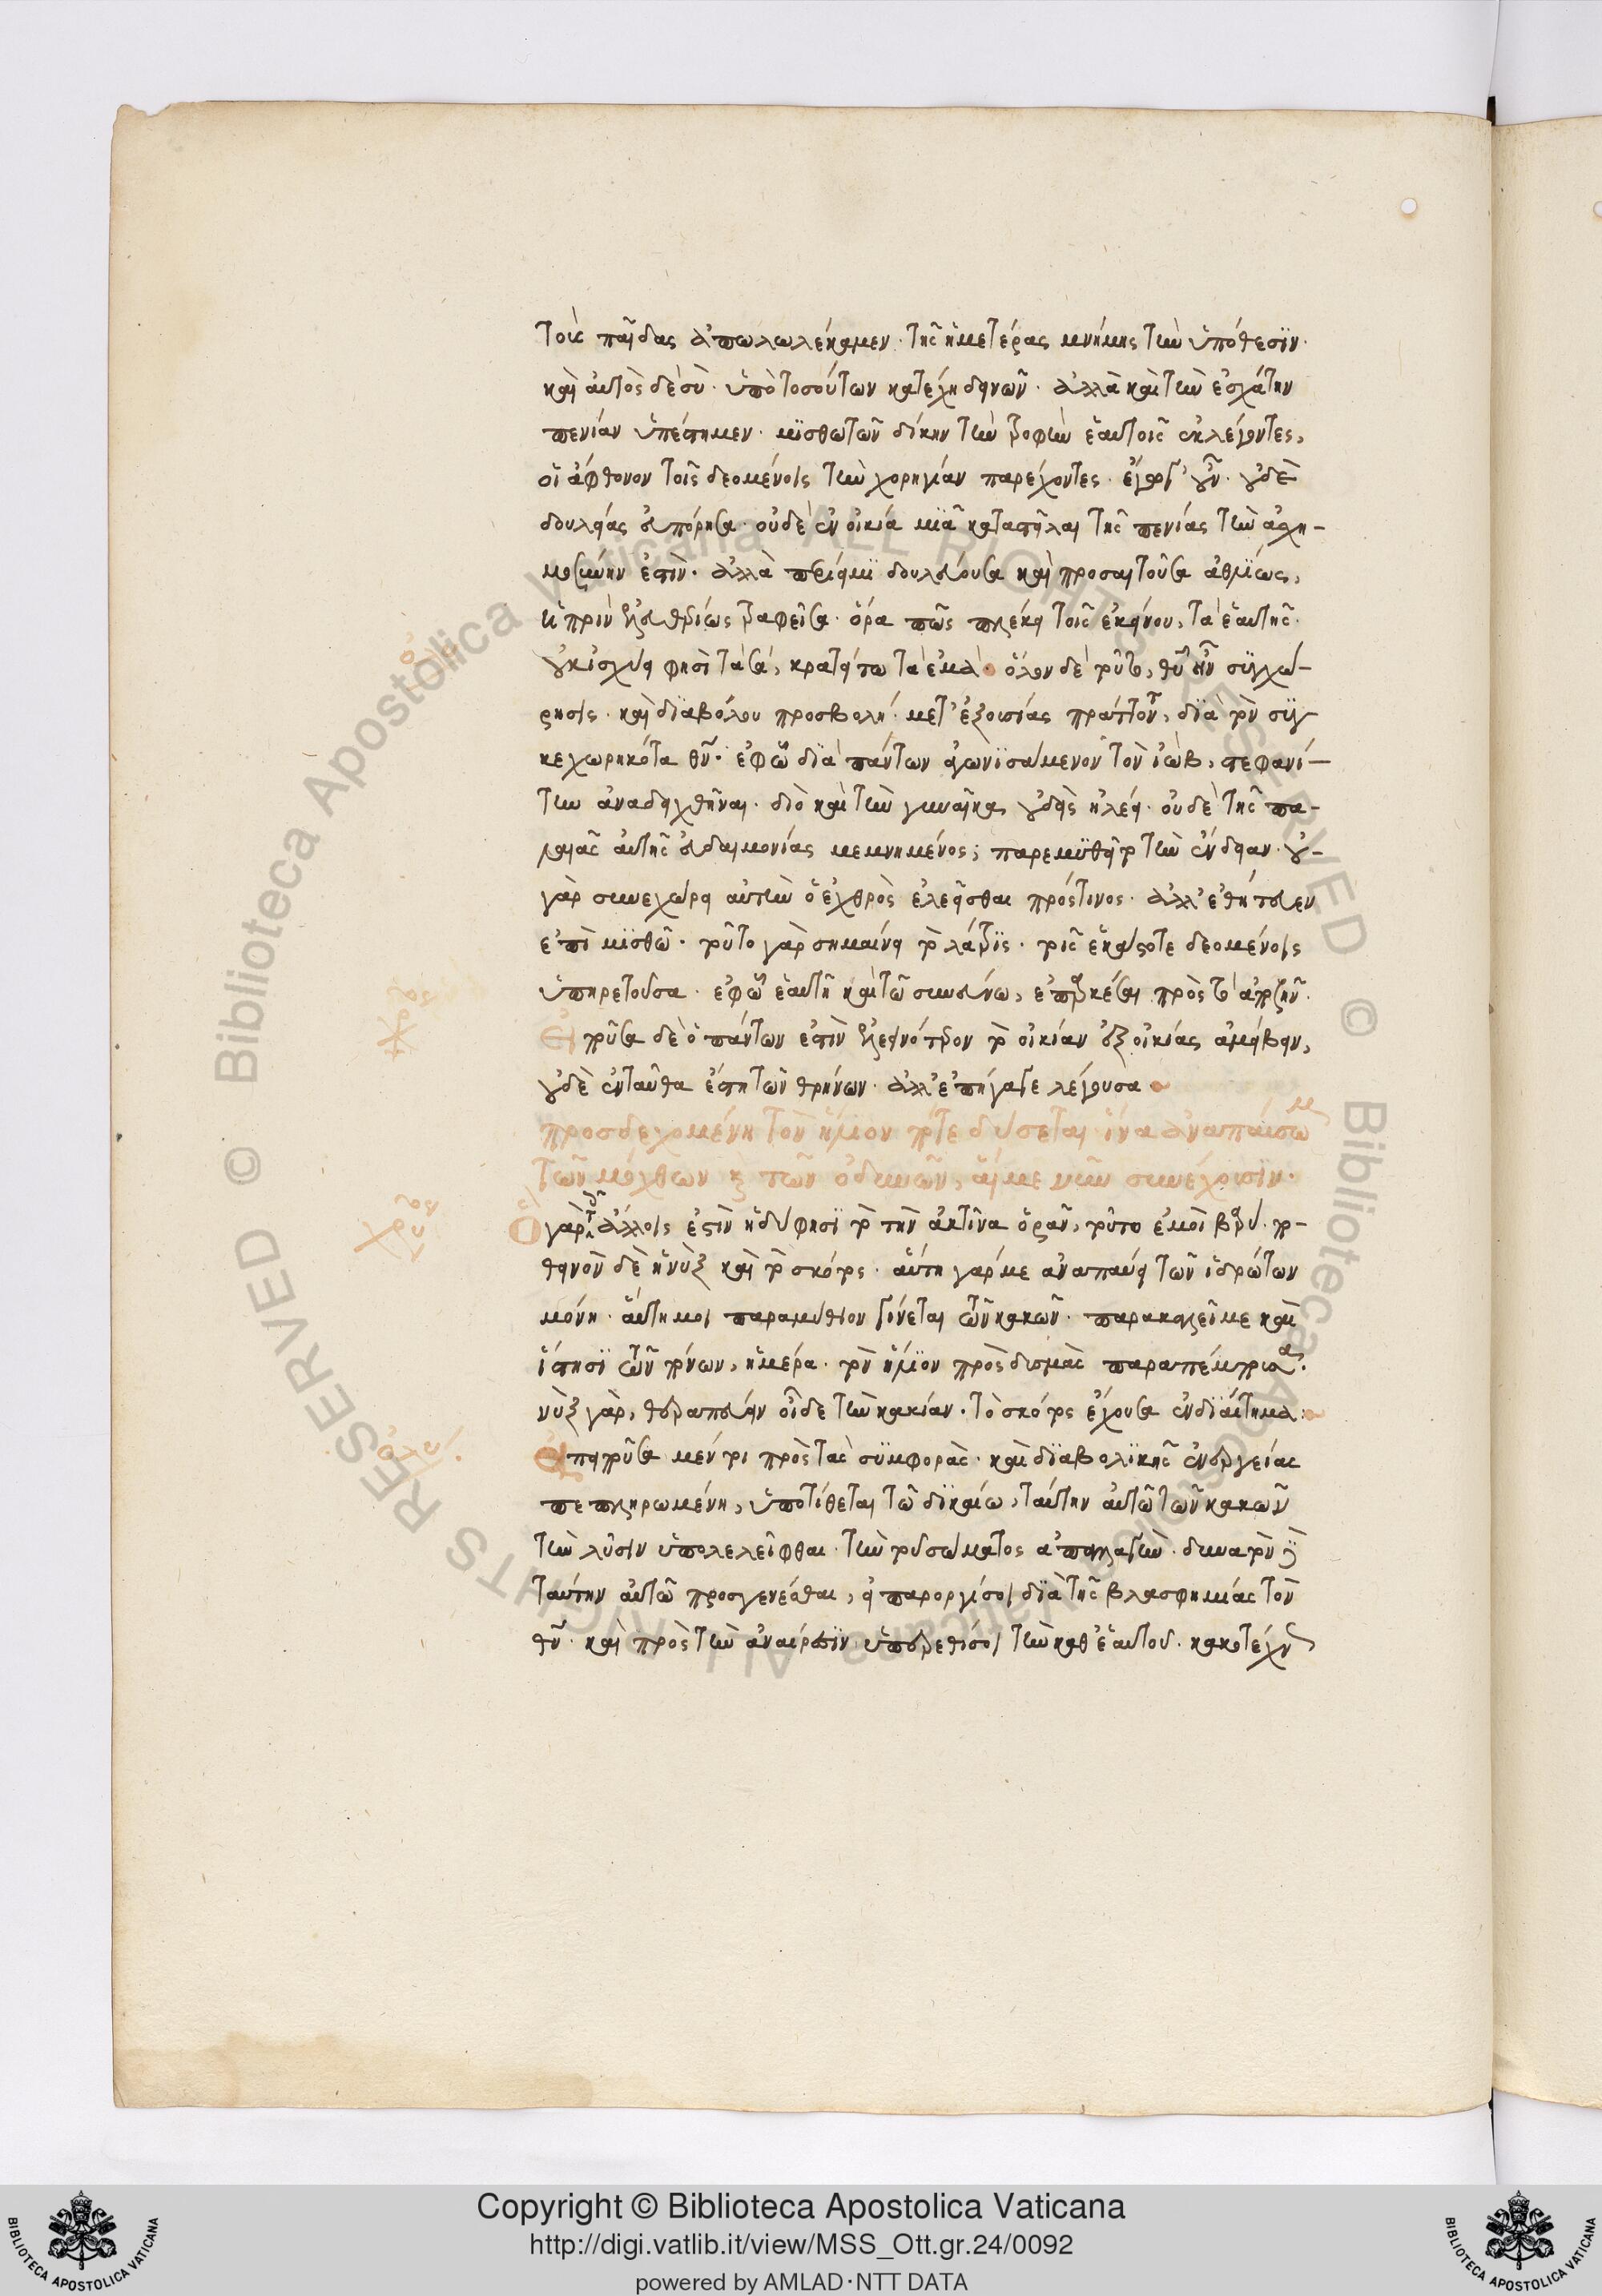 τοὺς παῖδας ἀπωλωλέκαμεν· τῆς ἡμετέρας μνήμης τὴν ὑπόθεσϊν·
καὶ αὐτὸς δὲ σὺ· ὑπὸ τοσούτων κατέχῃ δεινῶν· ἀλλὰ καὶ τὴν ἐσχάτην
πενίαν ὑπέστημεν· μϊσθωτῶν δίκην τὴν τροφὴν ἑαυτοῖς συλλέγοντες,
οἱ ἄφθονον τοῖς δεομένοις τὴν χορηγίαν παρέχοντες· οὐδὲ
δουλείας εὐπόρησα· οὐδὲ ἐν οἰκία μϊᾶ καταστῆσαι τῆς πενίας τὴν ἀσχη-
μοσύνην ἐστὶν· ἀλλὰ περίειμϊ δουλεύουσα καὶ προσαιτοῦσα ἀθλίως,
ἡ πρὶν ἐλευθερίως τραφεῖσα· ὅρα πῶς πλέκει τοῖς ἐκείνου, τὰ ἑαυτῆς·
οὐκ ἰσχύει φησὶ τὰ σὰ, κρατείτω τὰ ἐμὰ· ὅλον δὲ τοῦτο, θυ ἦν συγχώ-
ρησις· καὶ διαβόλου προσβολὴ· μετ' ἐξουσίας πράττοντος, διὰ τὸν συγ-
κεχωρηκότα θν· ἐφ' ὧ διὰ πάντων ἀγωνισάμενον τὸν ἰὼβ, στεφανί-
την ἀναδειχθῆναι· διὸ καὶ τὴν γυναῖκα οὐδεὶς ἠλέει· οὐδὲ τῆς πα-
λαιᾶς αὐτῆς εὐδαιμονίας μεμνημένος, παρεμυθεῖτο τὴν ἔνδειαν· οὐ
γὰρ συνεχώρει αὐτὴν ὁ ἐχθρὸς ἐλεεῖσθαι πρός τινος· ἀλλ' ἐθήτευεν
ἐπὶ μισθῶ· τοῦτο γὰρ σημαίνει τὸ λάτρις· τοῖς ἑκάστοτε δεομένοις
ὑπηρετοῦσα· ἐφ' ὧ ἑαυτῆ καὶ τῶ συνεύνω, ἐπαρκέσαι πρὸς τὸ ἀποζῆν·
Ἐπὶ τοῦτα δὲ ὃ πάντων ἐστὶν ἐλεεινότερον τὸ οἰκίαν ἐξ οἰκίας ἀμείβειν,
οὐδὲ ἐνταῦθα ἔστη τῶν θρήνων· ἀλλ' ἐπήγαγε λέγουσα
προσδεχομένη τὸν ἥλιον πότε δύσεται ἵνα ἀναπαύσωμαι
τῶν μόχθων καὶ τῶν ὀδυνῶν, αἵ με νῦν συνέχουσιν·
Ὃ γὰρ τοῖς ἄλλοις ἐστὶν ἡδὺ φησὶ τὸ τὴν ἀκτῖνα ὁρᾶν, τοῦτο ἐμοὶ βαρύ· πο-
θεινὸν δὲ ἡ νὺξ καὶ τὸ σκότος· αὕτη γάρ με ἀναπαύει τῶν ἱδρώτων
μόνη· αὕτη μοι παραμύθιον γίνεται τῶν κακῶν· παρακαλεῖ με καὶ
ἵστησϊ τῶν πόνων, ἡμέρα· τὸν ἥλιον πρὸς δυσμὰς παραπέμπουσα·
νὺξ γὰρ, θεραπεύειν οἶδε τὴν κακίαν· τὸ σκότος ἔχουσα ἐνδϊαίτημα·
Ἐπὶ τοῦτα μέν τοι πρὸς τὰς συμφορὰς· καὶ διαβολικῆς ἐνεργείας
πεπληρωμένη, ὑποτίθεται τῶ δικαίω, ταύτην αὐτῶ τῶν κακῶν
τὴν λύσιν ὑπολελεῖφθαι· τὴν τοῦ σώματος ἀπαλλαγὴν· δυνατὸν δὲ
ταύτην αὐτῶ προσγενέσθαι, εἰ παροργίσοι διὰ τῆς βλασφημίας τὸν
θν· καὶ πρὸς τὴν ἀναίρεσιν ὑπερεθίσοι τὴν καθ' ἑαυτοῦ· κακοτέχν
Copyright © Biblioteca Apostolica Vaticana
http://digi.vatlib.it/view/MSS_Ott.gr.24/0092
powered by AMLAD·NTT DATA